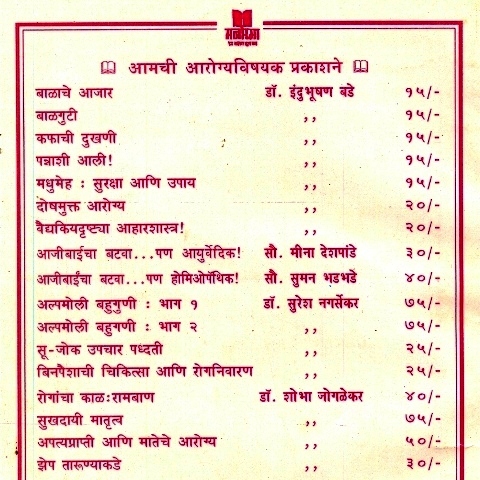 मनोरमा
आमची आरोग्यविषयक प्रकाशने
बाळाचे आजार डॉ. इंदुभूषण बडे १५/-
बाळगुटी ,, १५/-
कफाची दुखणी ,, १५/-
पन्नाशी आली! ,, १५/-
मधुमेह : सुरक्षा आणि उपाय ,, १५/-
दोषमुक्त आरोग्य ,, २०/-
वैद्यकियदृष्ट्या आहारशास्त्र! ,, २०/-
आजीबाईचा बटवा...पण आयुर्वेदिक! सौ. मीना देशपांडे ३०/-
आजीबाईचा बटवा...पण होमिओपॅथिक! सौ. सुमन भडभडे ४०/-
अल्पमोली बहुगुणी : भाग १ डॉ. सुरेश नगर्सेकर ७५/-
अल्पमोली बहुगुणी : भाग २ ,, ७५/-
सू-जोक उपचार पध्दती ,, २५/-
बिनपैशाची चिकित्सा आणि रोगनिवारण ,, २५/-
रोगांचा काळ:रामबाण डॉ. शोभा जोगळेकर ४०/-
सुखदायी मातृत्व ,, ७५/-
अपत्यप्राप्ती आणि मातेचे आरोग्य ,, ५०/-
झेप तारूण्याकडे ,, ३०/-